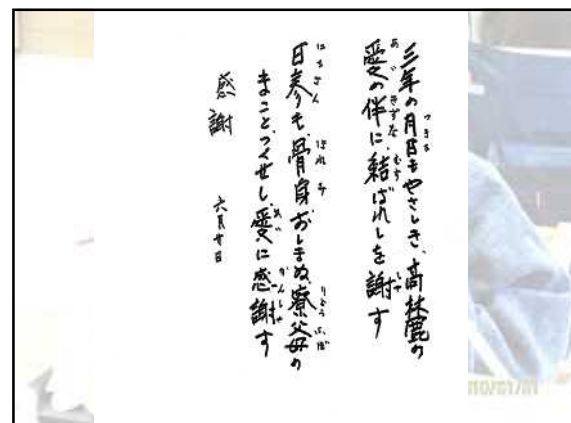 三年の月日もやさしき、高林鹿の
愛の伴に、結ばれしを謝す
日参も、骨身おしまぬ寮父母の
まことつくせし愛に感謝す
感謝 六月廿日
010/01/01